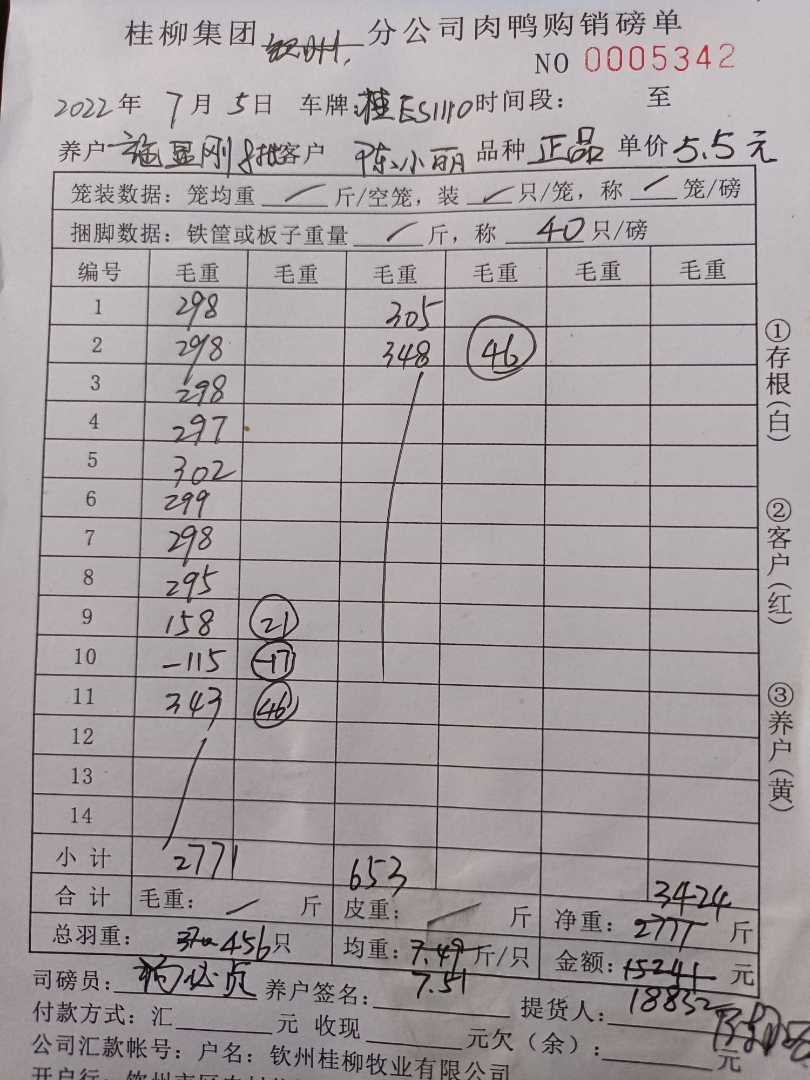 桂柳集团 钦州 分公司肉鸭购销磅单
NO 0005342
2022年 7月 5日 车牌:桂ES1110 时间段: 至
养户 显刚 客户 陈小丽 品种 正品 单价 5.5元
笼装数据:笼均重 / 斤/空笼,装 / 只/笼,称 / 笼/磅
捆脚数据:铁筐或板子重量 / 斤,称 40 只/磅
编号 毛重 毛重 毛重 毛重 毛重 毛重
1 298 305
2 298 348 46
3 298
4 297
5 302
6 299
7 298
8 295
9 158 21
10 -115 -17
11 343 46
12
13
14
小计 2771 653
3424
合计 毛重: / 斤 皮重: / 斤 净重: 2777 斤
总羽重: 370 456只 均重: 7.49 斤/只 金额: 15241 元
7.51 18832
司磅员: 养户签名: 提货人:
付款方式:汇 元 收现 元欠(余): 元
公司汇款帐号:户名:钦州桂柳牧业有限公司
开户行:钦州市区农村
①存根(白)
②客户(红)
③养户(黄)